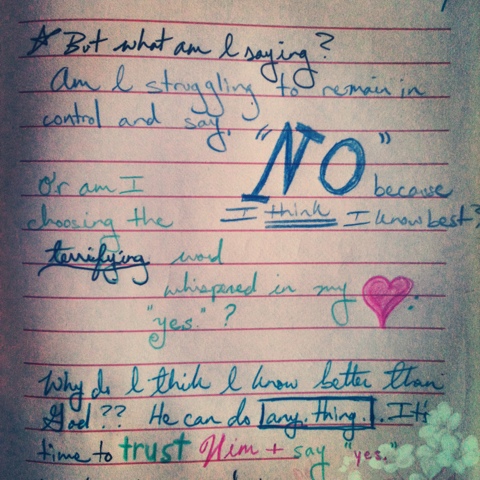 But what am I saying?
Am I struggling to remain in
control and say, "NO" because
I think I know best?
Or am I
choosing the
terrifying word
whispered in my ♥:
"yes." ?
Why do I think I know better than
God?? He can do any.thing. It's
time to trust Him + say "yes."